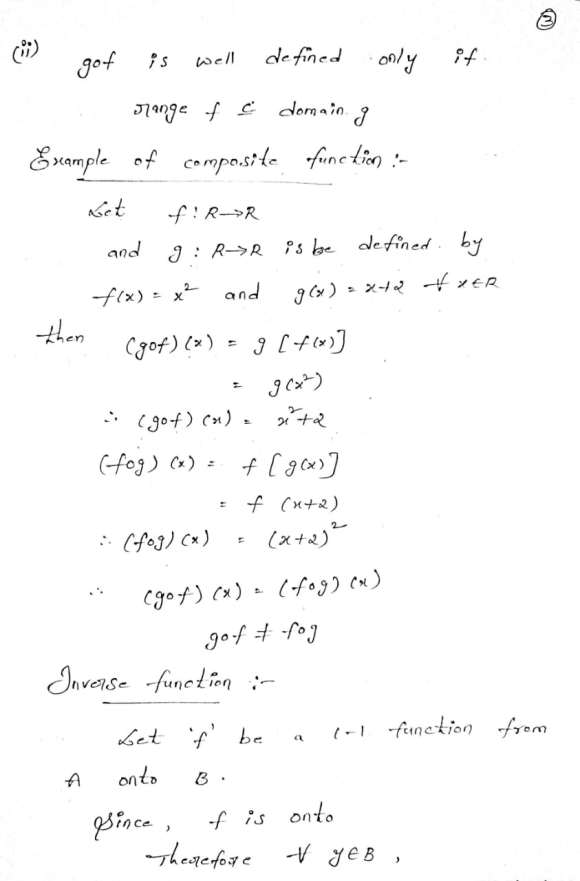 ③
(ii) gof is well defined only if
range f ⊆ domain g
Example of composite function :-
Let f : R→R
and g : R→R is be defined by
f(x) = x² and g(x) = x+2 ∀ x∈R
then (gof)(x) = g[f(x)]
= g(x²)
∴ (gof)(x) = x²+2
(fog)(x) = f[g(x)]
= f(x+2)
∴ (fog)(x) = (x+2)²
∴ (gof)(x) = (fog)(x)
gof ≠ fog
Inverse function :-
Let 'f' be a 1-1 function from
A onto B.
Since, f is onto
Therefore ∀ y∈B,